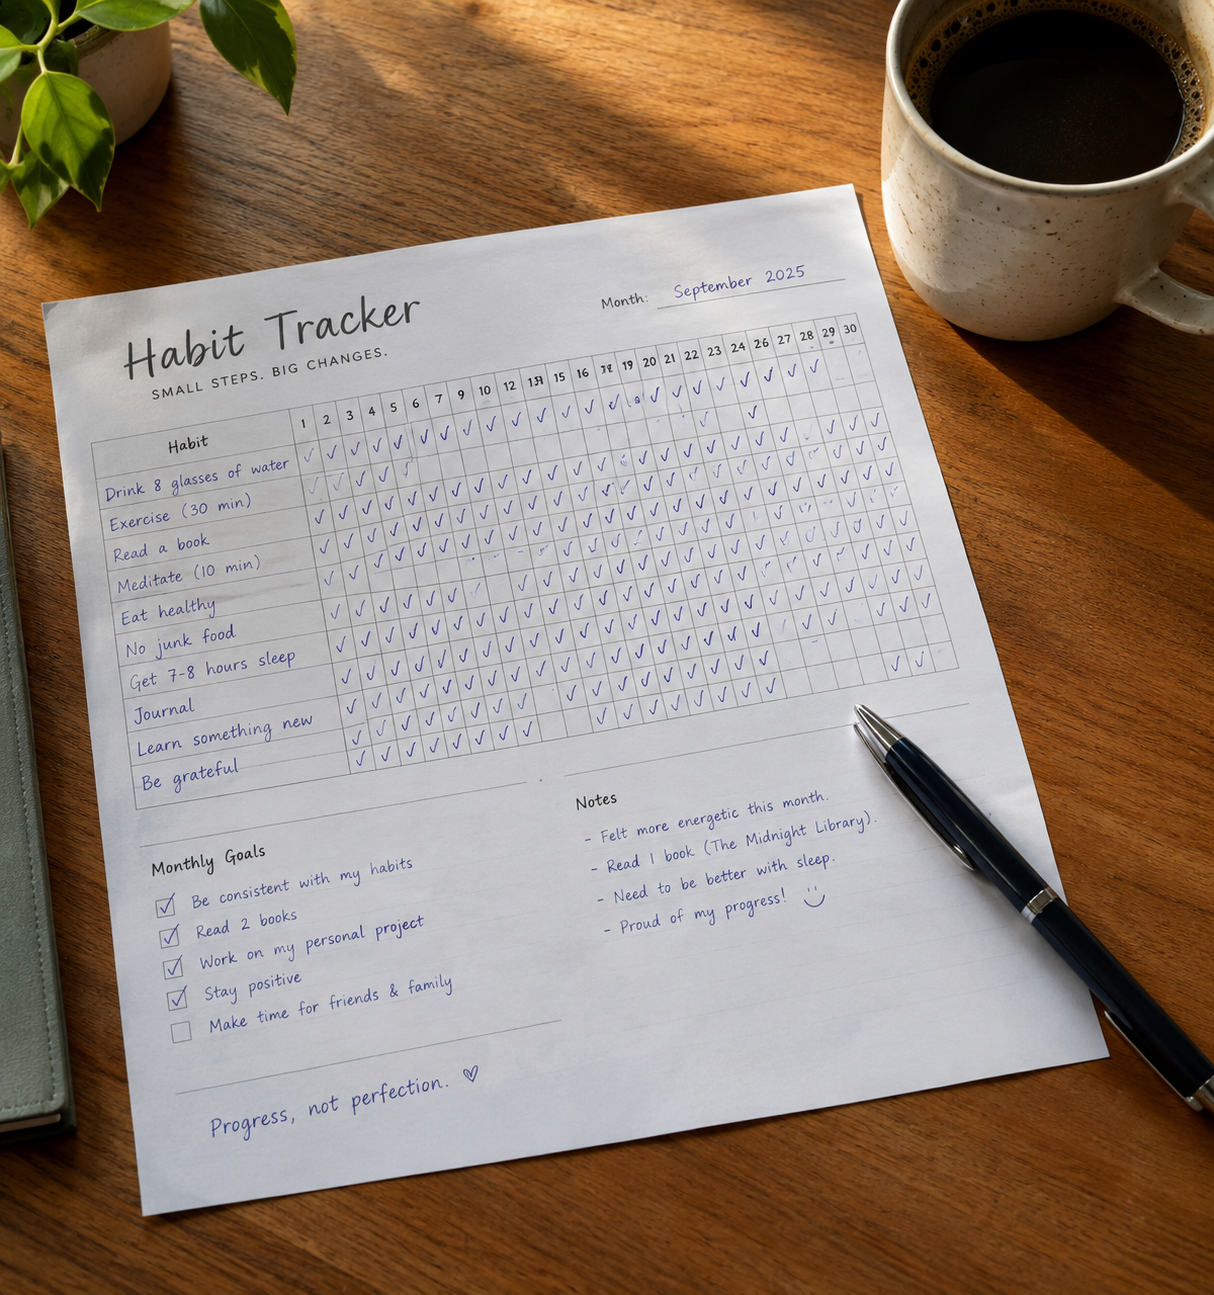 Habit Tracker
SMALL STEPS. BIG CHANGES.
Month: September 2025
Habit 1 2 3 4 5 6 7 9 10 12 15 16 19 20 21 22 23 24 26 27 28 29 30
Drink 8 glasses of water
Exercise (30 min)
Read a book
Meditate (10 min)
Eat healthy
No junk food
Get 7-8 hours sleep
Journal
Learn something new
Be grateful
Monthly Goals
Be consistent with my habits
Read 2 books
Work on my personal project
Stay positive
Make time for friends & family
Notes
- Felt more energetic this month.
- Read 1 book (The Midnight Library).
- Need to be better with sleep.
- Proud of my progress!
Progress, not perfection.